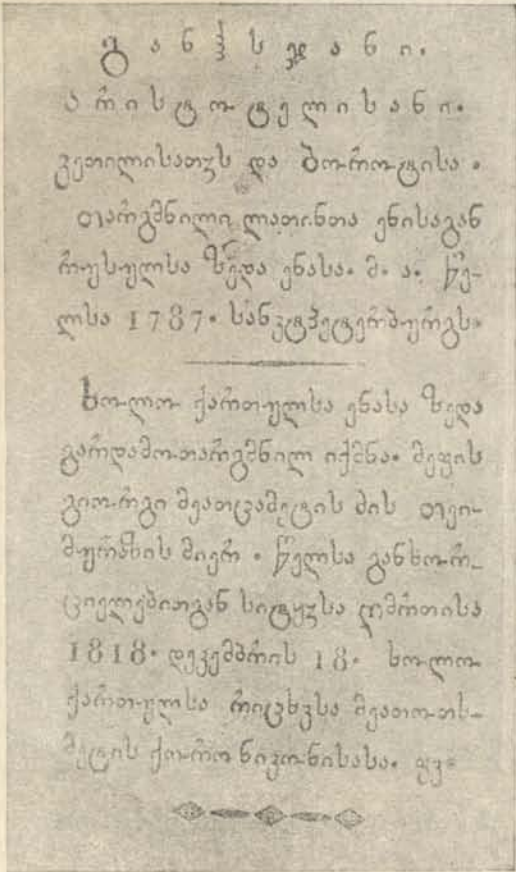 განჰსჯანი.
არისტოტელისანი.
კეთილისათჳს და ბოროტისა.
თარგმნილი ლათინთა ენისაგან
რუსულსა ზედა ენასა. მ. ა. წე-
ლსა 1787. სანკტპეტერბურგს.
ხოლო ქართულსა ენასა ზედა
გარდამოთარგმნილ იქმნა. მეფის
გიორგი მეათცამეტის ძის თეი-
მურაზის მიერ. წელსა განხორ-
ციელებითგან სიტყჳსა ღმრთისა
1818. დეკემბრის 18. ხოლო
ქართულსა რიცხჳსა მეათოთხ-
მეტის ქორონიკონისასა.